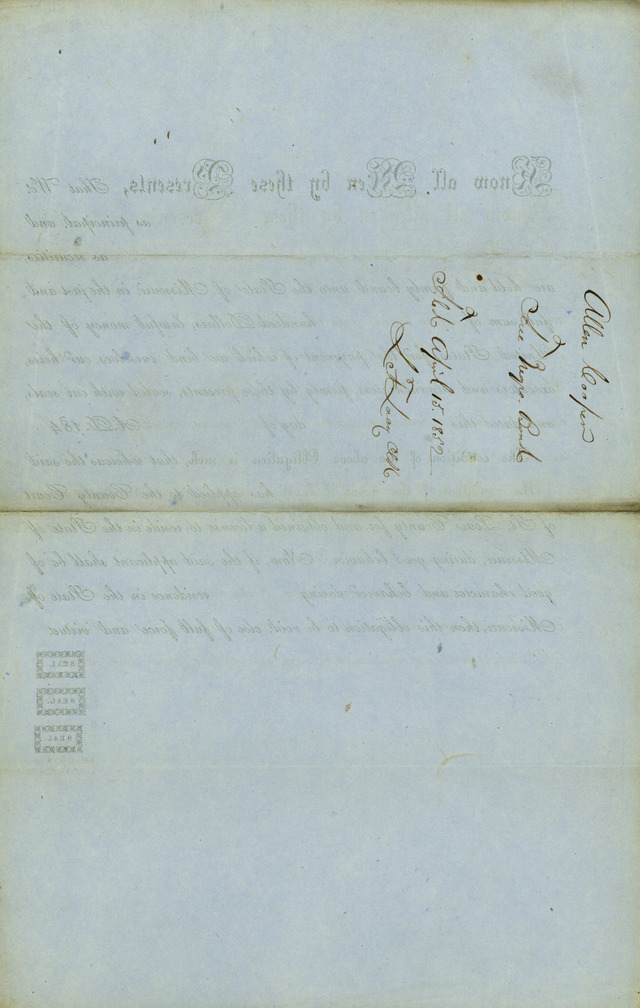 Allen Cooper
Free Negro Bond
Filed April 15. 1852
Know all Men by these Presents, That We
as principal, and
as securities
are held and firmly bound unto the State of Missouri, in the just and
sum of hundred Dollars, lawful money of the
payment of which we bind ourselves, our heirs,
firmly by these presents, sealed with our seals,
this day of A.D. 184
The condition of the above Obligation is such, that whereas the said
has applied to the County Court
of St. Louis County for and obtained a license to reside in the State of
Missouri, during good behavior: Now, if the said applicant shall be of
good character and behavior during residence in the State of
Missouri, then this obligation to be void, else of full force and virtue.
SEAL.
SEAL.
SEAL.